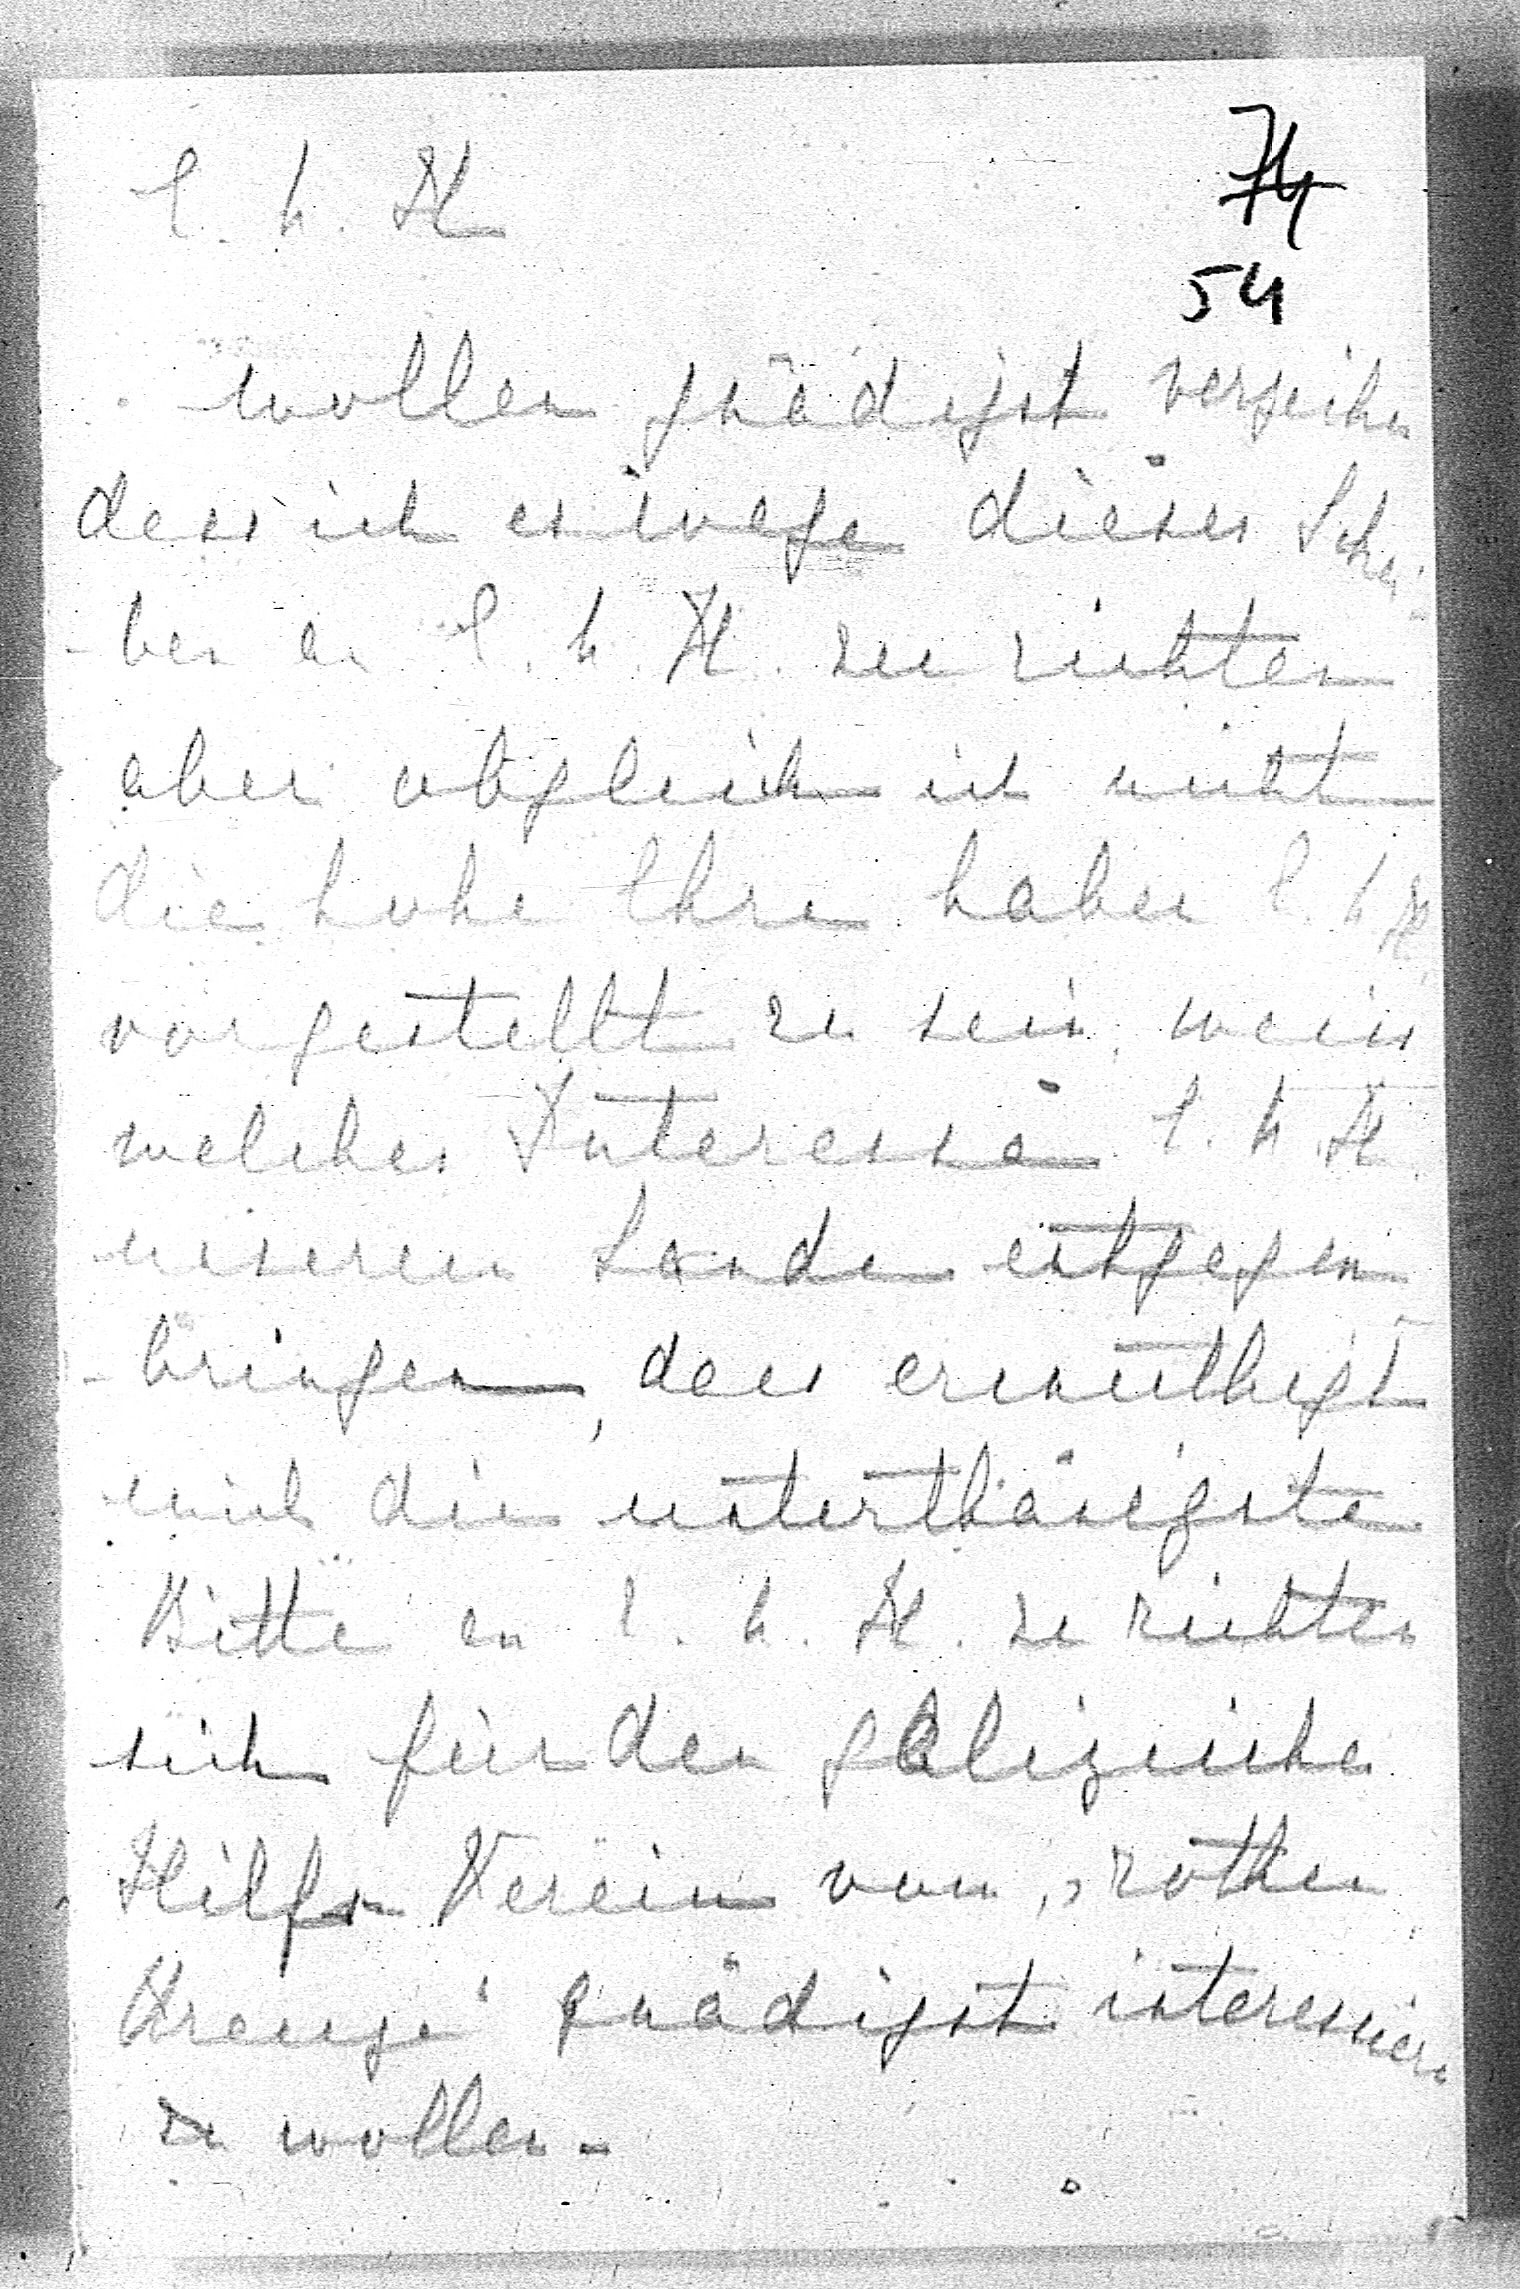 E. h. H
74
54
wollen gnädigst verzeihen
dass ich es wage dieses Schrei-
-ben an E. h. H. zu richten
aber obgleich ich nicht
die hohe Ehre habe E. h. H.
vorgestellt zu sein, weiss
welches Interesse E. h. H.
unserem Lande entgegen
-bringen, dass ermuthigt
mich die unterthänigste
Bitte an E. h. H. zu richten
sich für den galizischen
Hilfs-Verein vom „rothen
Kreuze" gnädigst interessieren
zu wollen -